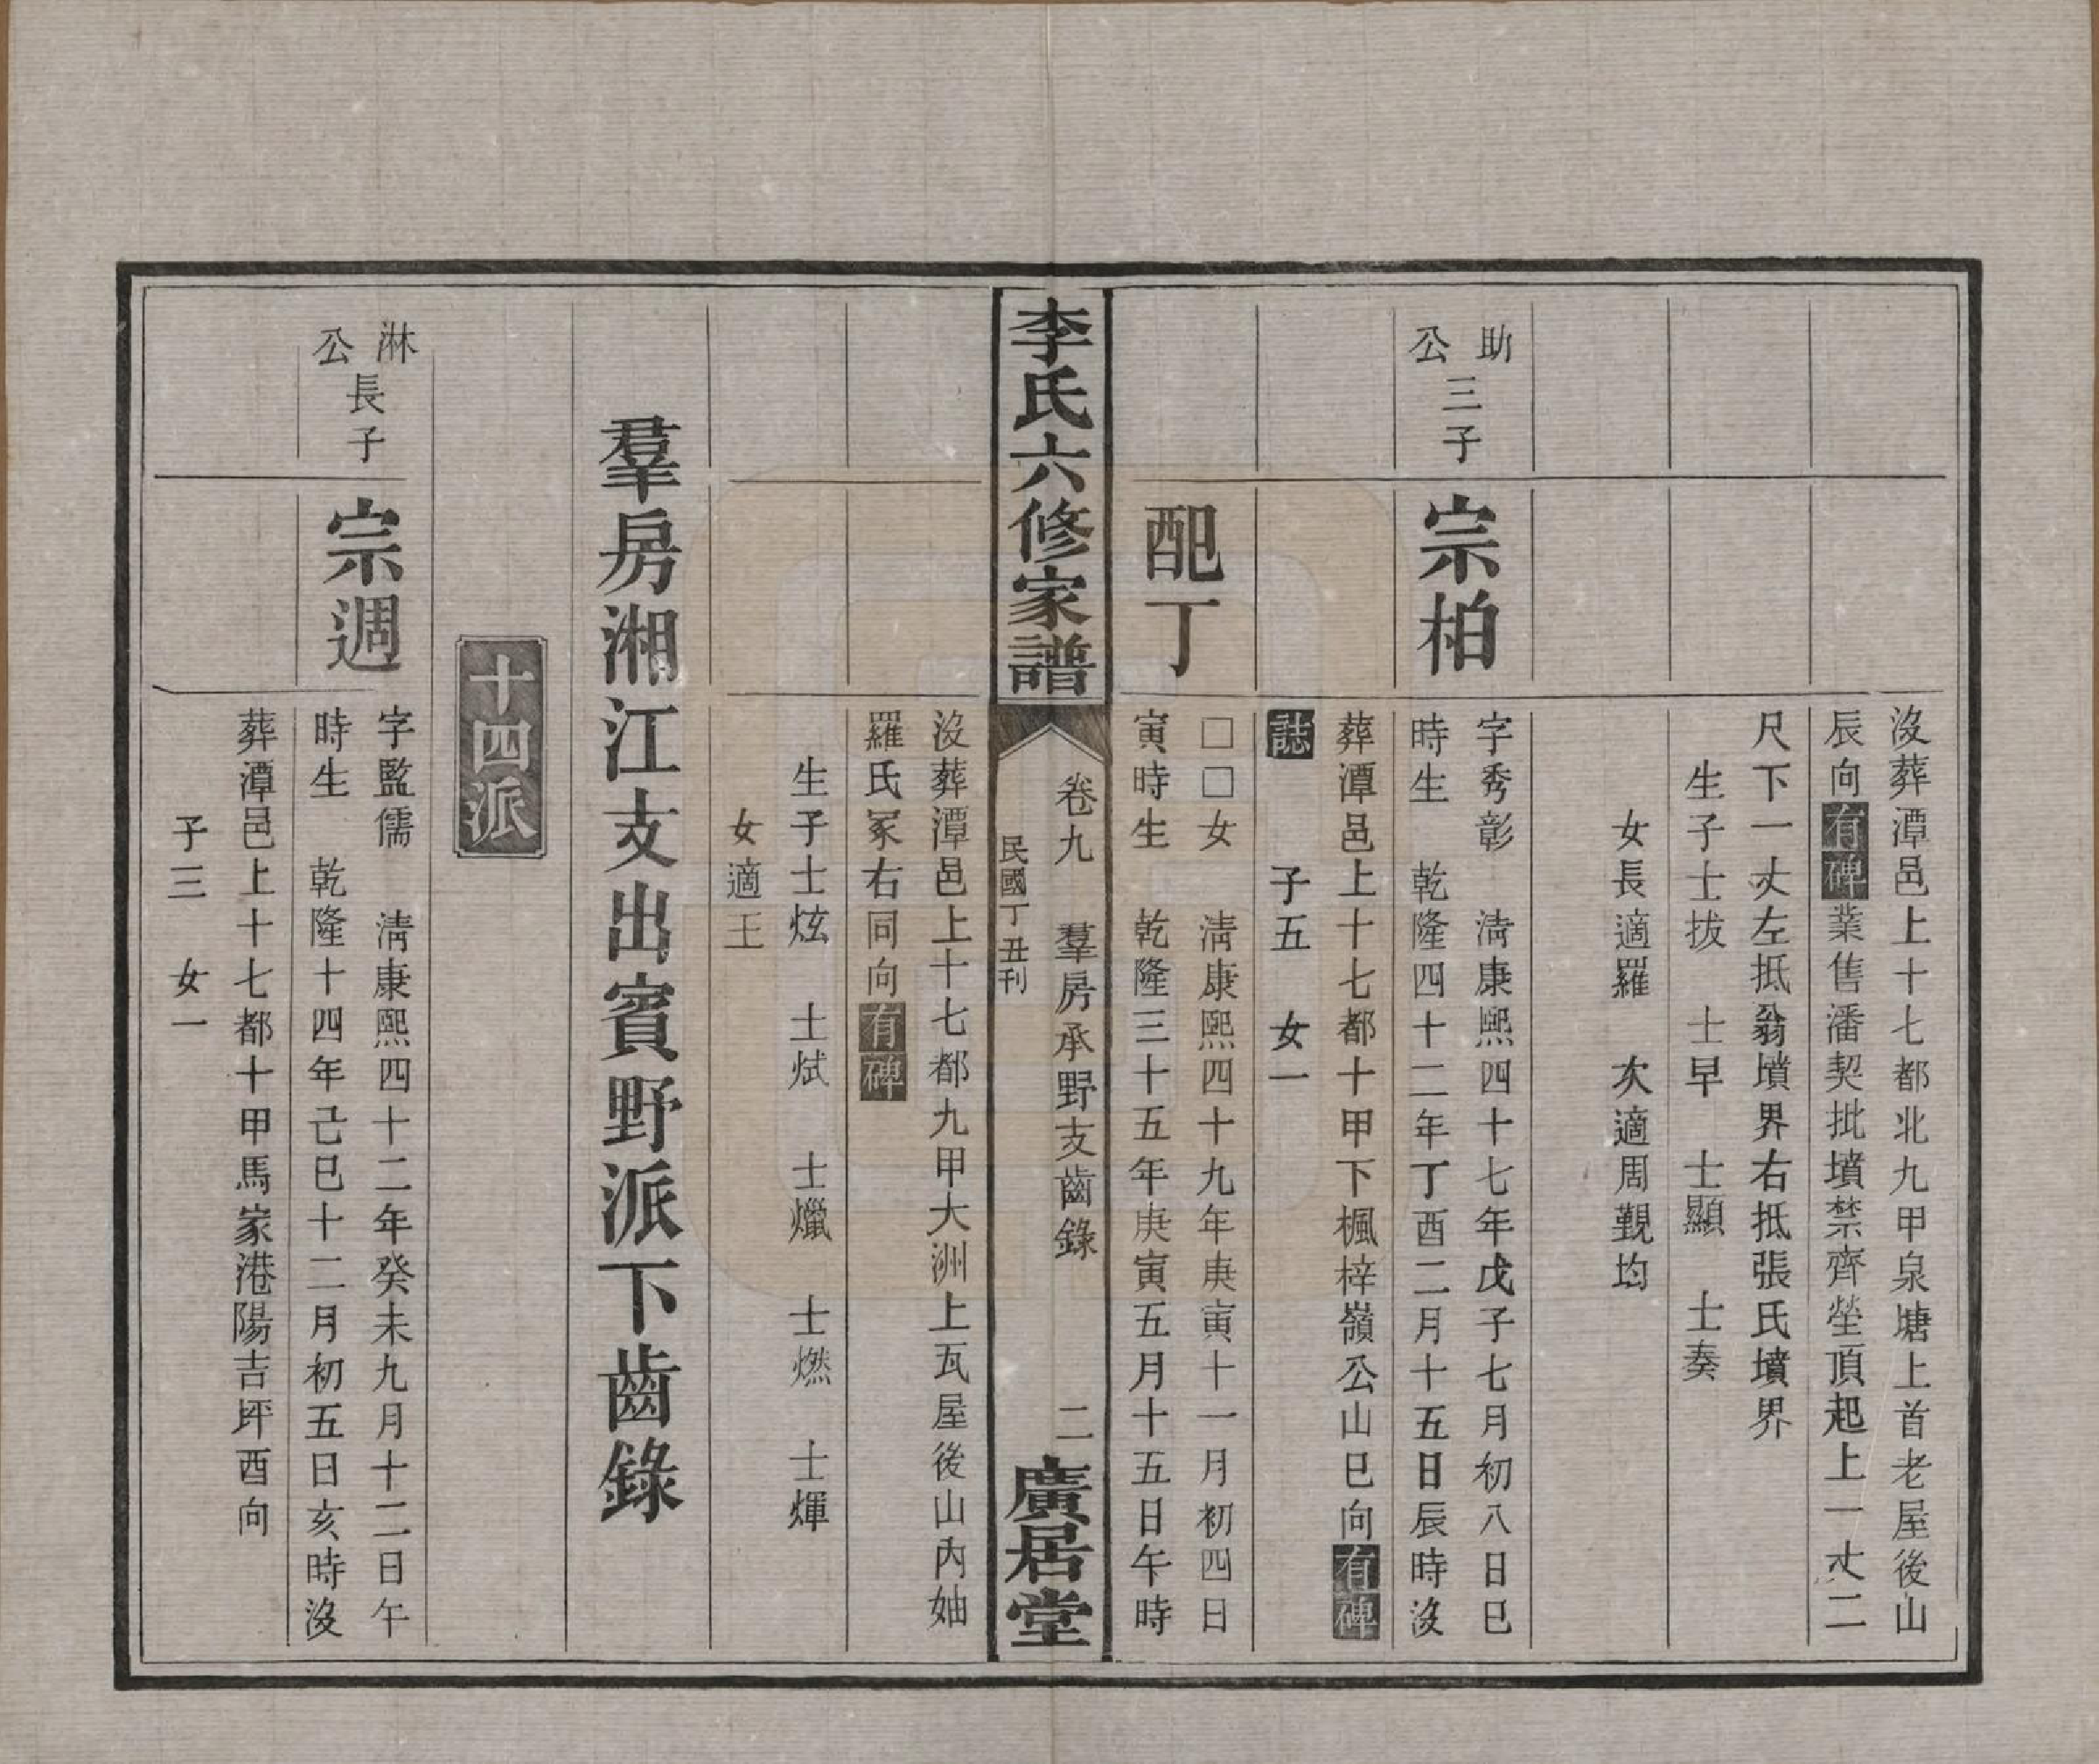 沒葬潭邑上十七都北九甲泉塘上首老屋後山
辰向有碑業售潘契批墳禁齊塋頂起上一丈二
尺下一丈左抵翁墳界右抵張氏墳界
生子士拔 士早 士顯 士奏
女長適羅 次適周觀均
助公三子
宗柏
字秀彰 清康熙四十七年戊子七月初八日巳
時生 乾隆四十二年丁酉二月十五日辰時沒
葬潭邑上十七都十甲下楓梓嶺公山巳向有碑
誌 子五 女一
配丁
□□女 清康熙四十九年庚寅十一月初四日
寅時生 乾隆三十五年庚寅五月十五日午時
李氏六修家譜
卷九 羣房承野支齒錄 二
民國丁丑刊
廣居堂
沒葬潭邑上十七都九甲大洲上瓦屋後山內妯
羅氏冢右同向有碑
生子士炫 士烒 士爐 士燃 士煇
女適王
羣房湘江支出賓野派下齒錄
十四派
淋公長子
宗週
字監儒 清康熙四十二年癸未九月十二日午
時生 乾隆十四年己巳十二月初五日亥時沒
葬潭邑上十七都十甲馬家港陽吉坪酉向
子三 女一